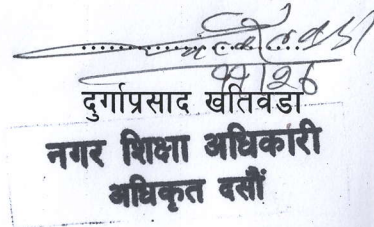 दुर्गाप्रसाद खतिवडा
नगर शिक्षा अधिकारी
अधिकृत दसौं